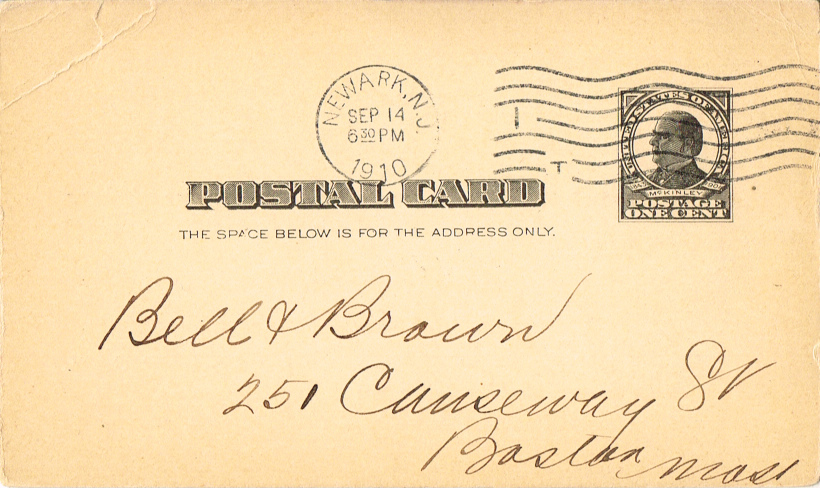 NEWARK, N.J.
SEP 14
6 30 PM
1910
I
T
UNITED STATES OF AMERICA
McKINLEY
POSTAGE
ONE CENT
POSTAL CARD
THE SPACE BELOW IS FOR THE ADDRESS ONLY.
Bell & Brown
251 Causeway St
Boston Mass